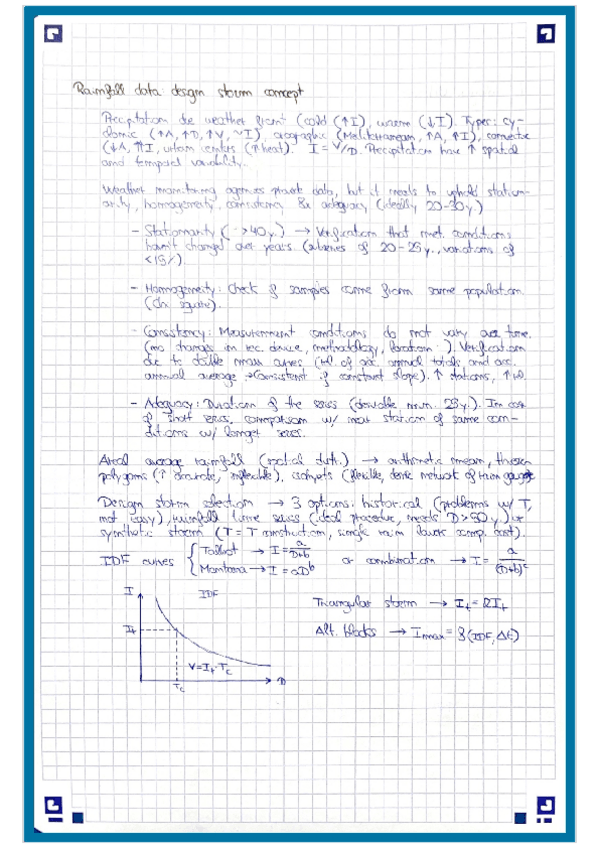 Rainfall data design storm concept
Precipitation due weather front (cold (↑I), warm (↓I). Types: cy-
clonic (↑A, ↑D, ↑V, ~I), orographic (Mediterranean, ↑A, ↑I), convective
(↓A, ⇈I, urban centers (↑heat). I = V/D. Precipitation have ↑ spatial
and temporal variability.
Weather monitoring agencies provide data, but it needs to uphold station-
arity, homogeneity, consistency & adequacy (ideally 20-30y)
- Stationarity ( >40y.) → Verification that met. conditions
haven't changed over years. (subseries of 20-25y., variations of
<15%).
- Homogeneity: Check if samples come from same population
(Chi square).
- Consistency: Measurement conditions do not vary over time.
(no changes in rec. device, methodology, location..). Verification
due to double mass curves (rel of acc. annual totals and acc.
annual average → Consistent if constant slope). ↑ stations, ↑ rel.
- Adequacy: Duration of the series (desirable min. 25y.). In case
of short series, comparison w/ near station of same con-
ditions w/ longer series.
Areal average rainfall (spatial distr.) → arithmetic mean, thiessen
polygons (↑ accurate, inflexible), isohyets (flexible, dense network of rain gauges
Design storm selection → 3 options: historical (problems w/ T,
not easy), rainfall time series (ideal procedure, needs D>50y.) or
synthetic storm (T = T construction, single rain lowers comp. cost).
IDF curves { Talbot → I = a/D+b
Montana → I = aDᵇ
or combination → I = a/(D+b)ᶜ
I IDF
It
V = It · Tc
Tc D
Triangular storm → It = 2It
Alt. blocks → Imax = f(IDF, Δt)